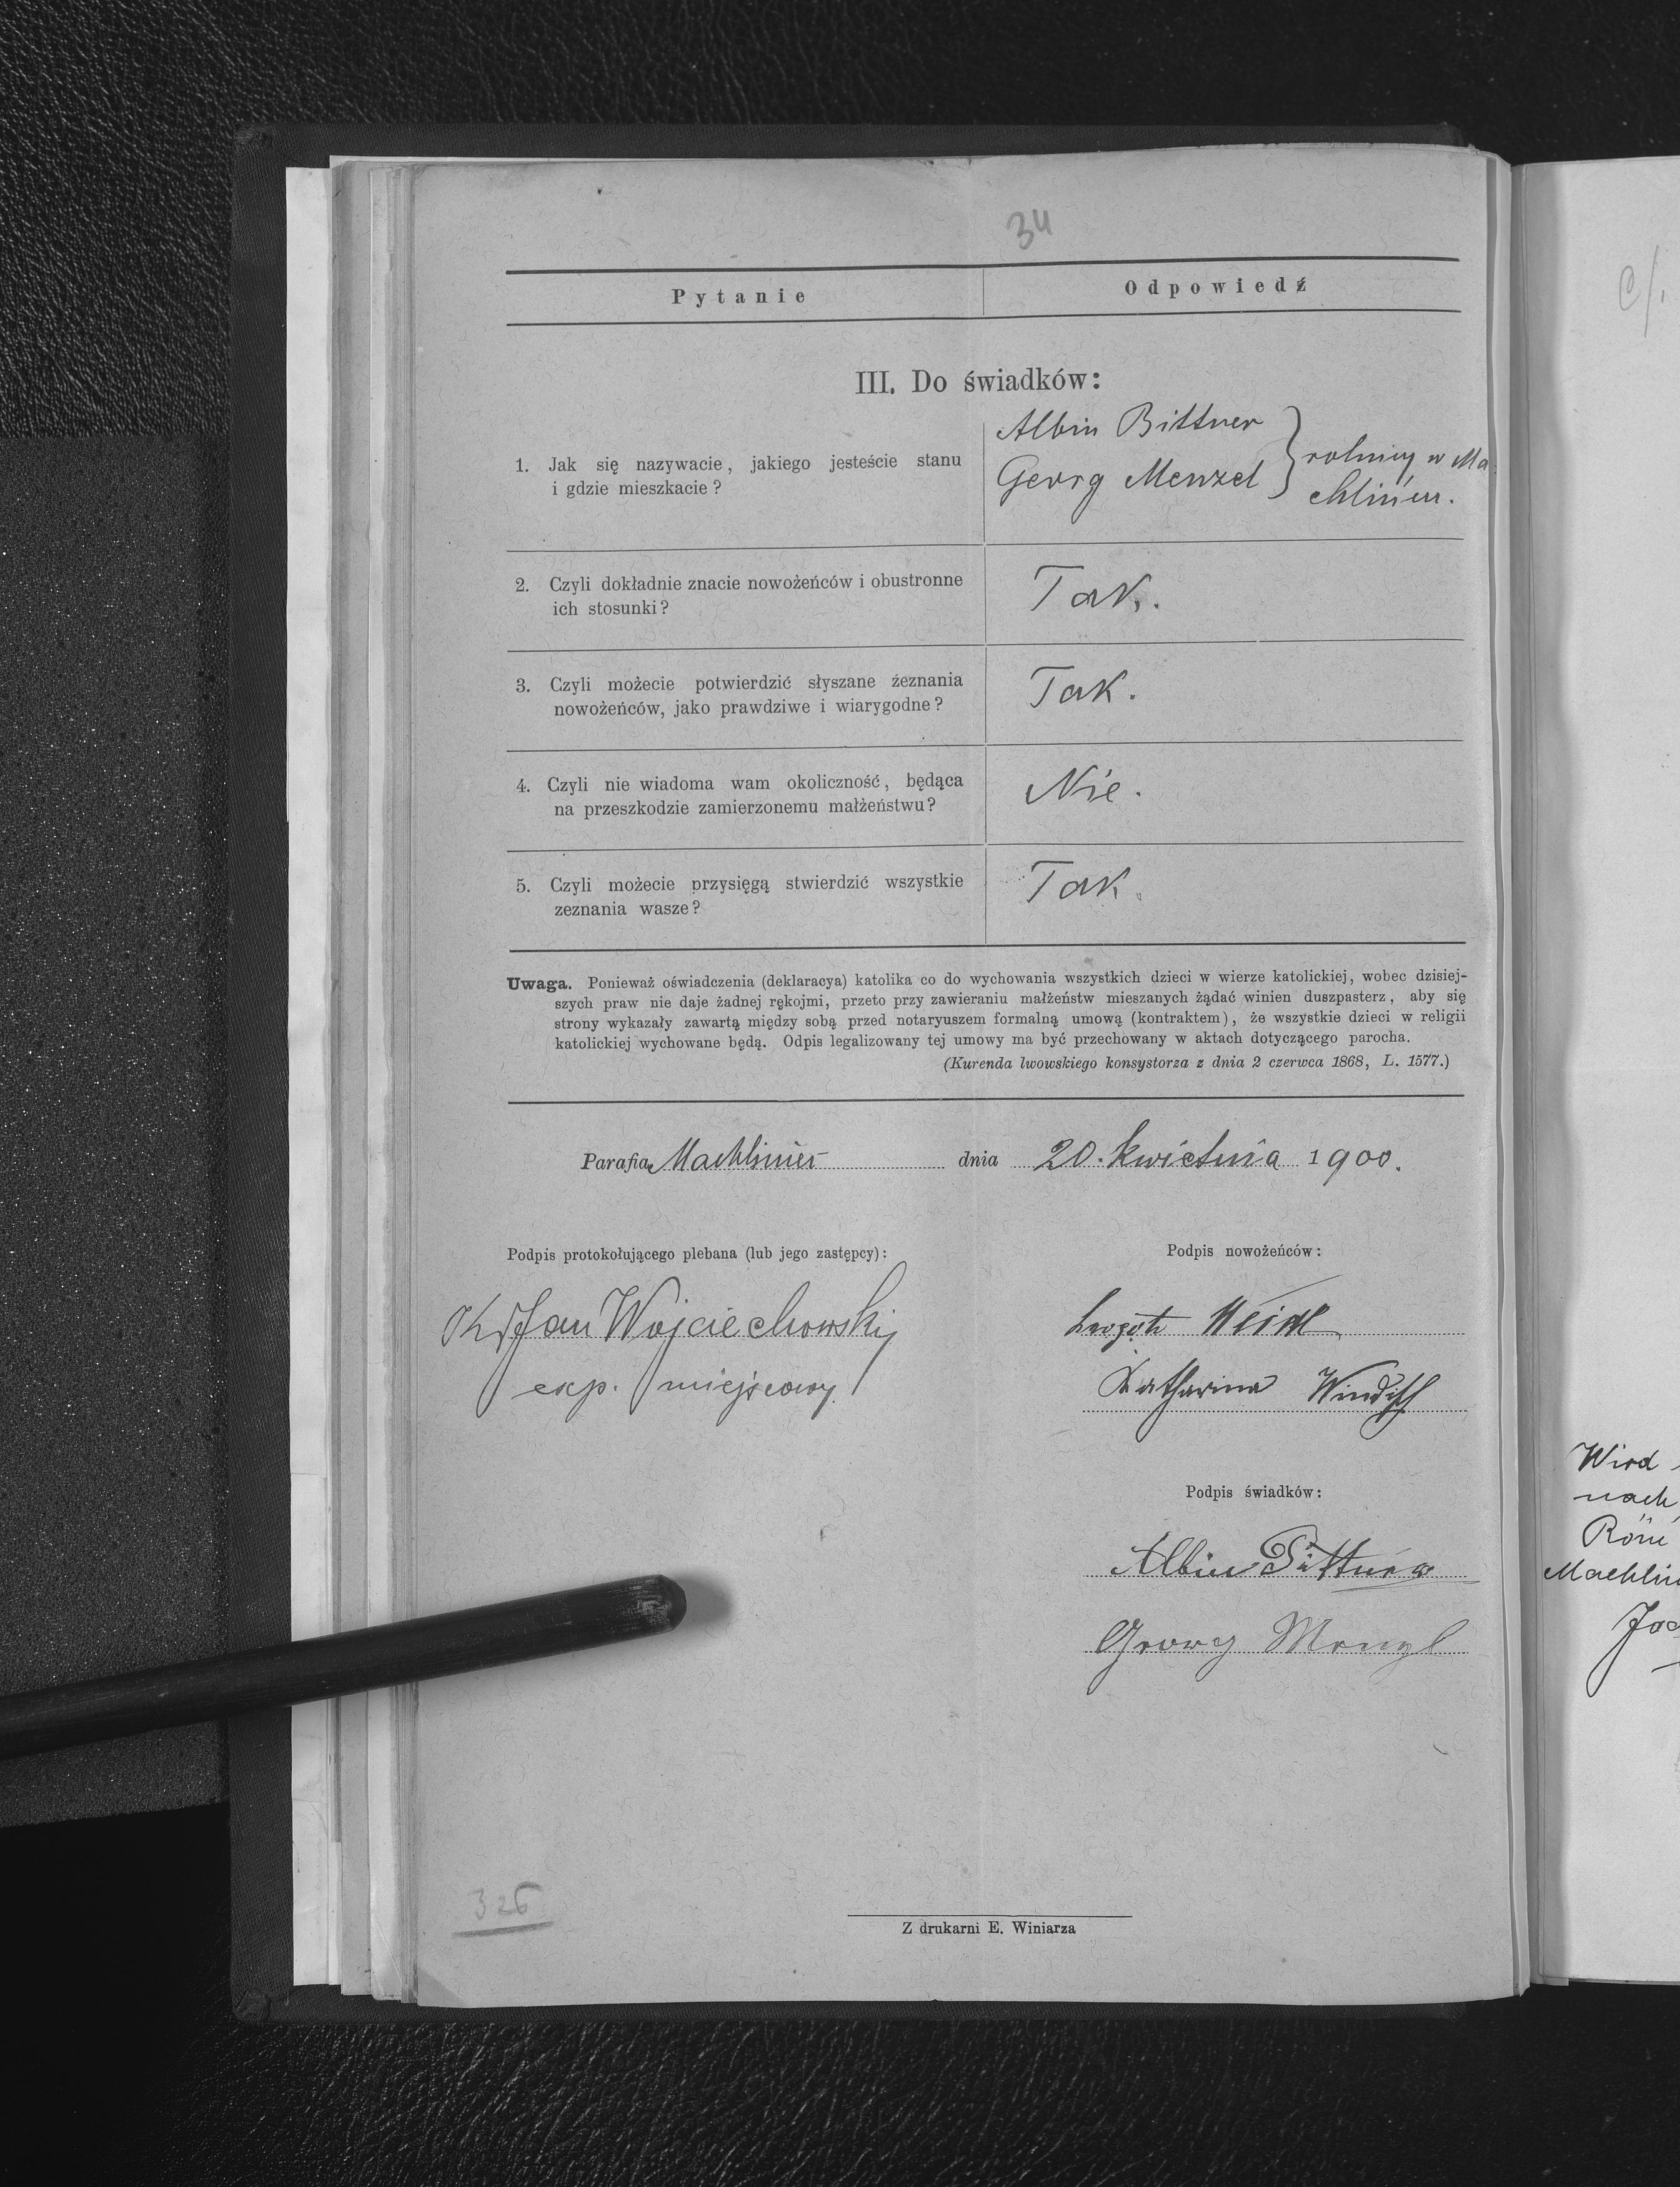 34
Pytanie Odpowiedź
III. Do świadków:
Albin Bittner
Georg Menzel } rolnicy w Ma
chlińcu.
1. Jak się nazywacie, jakiego jesteście stanu
i gdzie mieszkacie?
2. Czyli dokładnie znacie nowożeńców i obustronne
ich stosunki?
Tak.
3. Czyli możecie potwierdzić słyszane źeznania
nowożeńców, jako prawdziwe i wiarygodne?
Tak.
4. Czyli nie wiadoma wam okoliczność, będąca
na przeszkodzie zamierzonemu małżeństwu?
Nie.
5. Czyli możecie przysięgą stwierdzić wszystkie
zeznania wasze?
Tak.
Uwaga. Ponieważ oświadczenia (deklaracya) katolika co do wychowania wszystkich dzieci w wierze katolickiej, wobec dzisiej-
szych praw nie daje żadnej rękojmi, przeto przy zawieraniu małżeństw mieszanych żądać winien duszpasterz, aby się
strony wykazały zawartą między sobą przed notaryuszem formalną umową (kontraktem), że wszystkie dzieci w religii
katolickiej wychowane będą. Odpis legalizowany tej umowy ma być przechowany w aktach dotyczącego parocha.
(Kurenda lwowskiego konsystorza z dnia 2 czerwca 1868, L. 1577.)
Parafia Machliniec dnia 20. kwietnia 1900.
Podpis protokołującego plebana (lub jego zastępcy):
Ks Jan Wojciechowski
exp. miejscowy
Podpis nowożeńców:
Weidl
Katharina Windisch
Podpis świadków:
Albin Bittner
Georg Menzl
326
Z drukarni E. Winiarza
Wird
nach
Röm
Machlin